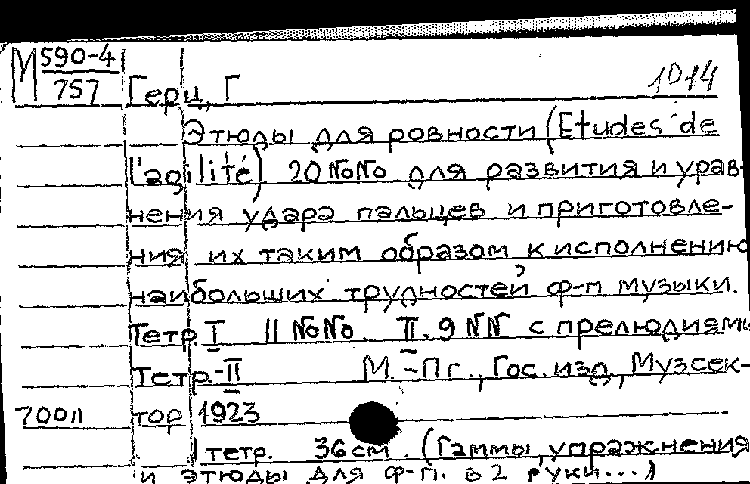 М 590-4
757
Герц, Г 1014
Этюды для ровности (Etudes de
l'agilité) 20 №№ для развития и урав-
нения удара пальцев и приготовле-
ния их таким образом к исполнению
наибольших трудностей ф-п музыки.
Тетр I 11 №№. II. 9 NN с прелюдиями
Тетр-II М.-Пг., Гос. изд, Музсек-
700л тор 1923
1 тетр. 36 см. (Гаммы, упражнения
и этюды для ф-п. в 2 руки...)